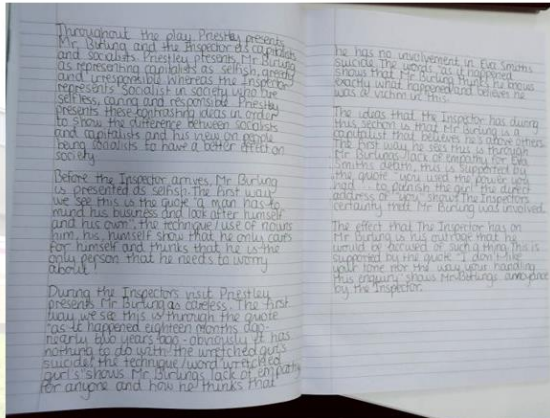 Throughout the play, Priestley presents
Mr. Birling and the Inspector as capitalists
and socialists. Priestley presents Mr Birling
as representing capitalists as selfish, greedy
and irresponsible whereas the Inspector
represents socialist in society who are
selfless, caring and responsible. Priestley
presents these contrasting ideas in order
to show the difference between socialists
and capitalists and his view on people
being socialists to have a better effect on
society.
Before the Inspector arrives, Mr Birling
is presented as selfish. The first way
we see this is the quote "a man has to
mind his business and look after himself
and his own", the technique/use of nouns
him, his, himself show that he only cares
for himself and thinks that he is the
only person that he needs to worry
about.
During the Inspectors visit Priestley
presents Mr Birling as careless. The first
way we see this is through the quote
"as it happened eighteen months ago-
nearly two years ago - obviously it has
nothing to do with the wretched girl's
suicide" the technique/word "wretched
girl's" shows Mr Birlings lack of empathy
for anyone and how he thinks that
he has no involvement in Eva Smiths
suicide. The words "as it happened"
shows that Mr Birling thinks he knows
exactly what happened and believes he
was a victim in this.
The ideas that the Inspector has during
this section is that Mr Birling is a
capitalist that believes he's above others.
The first way he sees this is through
Mr Birlings lack of empathy for Eva
Smiths death, this is supported by
the quote "you used the power you
had ... to punish the girl" the direct
address of "you" shows The Inspectors
certainty that Mr Birling was involved.
The effect that The Inspector has on
Mr Birling is his outrage that he
would be accused of such a thing. This is
supported by the quote "I don't like
your tone nor the way your handling
this enquiry" shows Mr Birlings annoyance
by the Inspector.